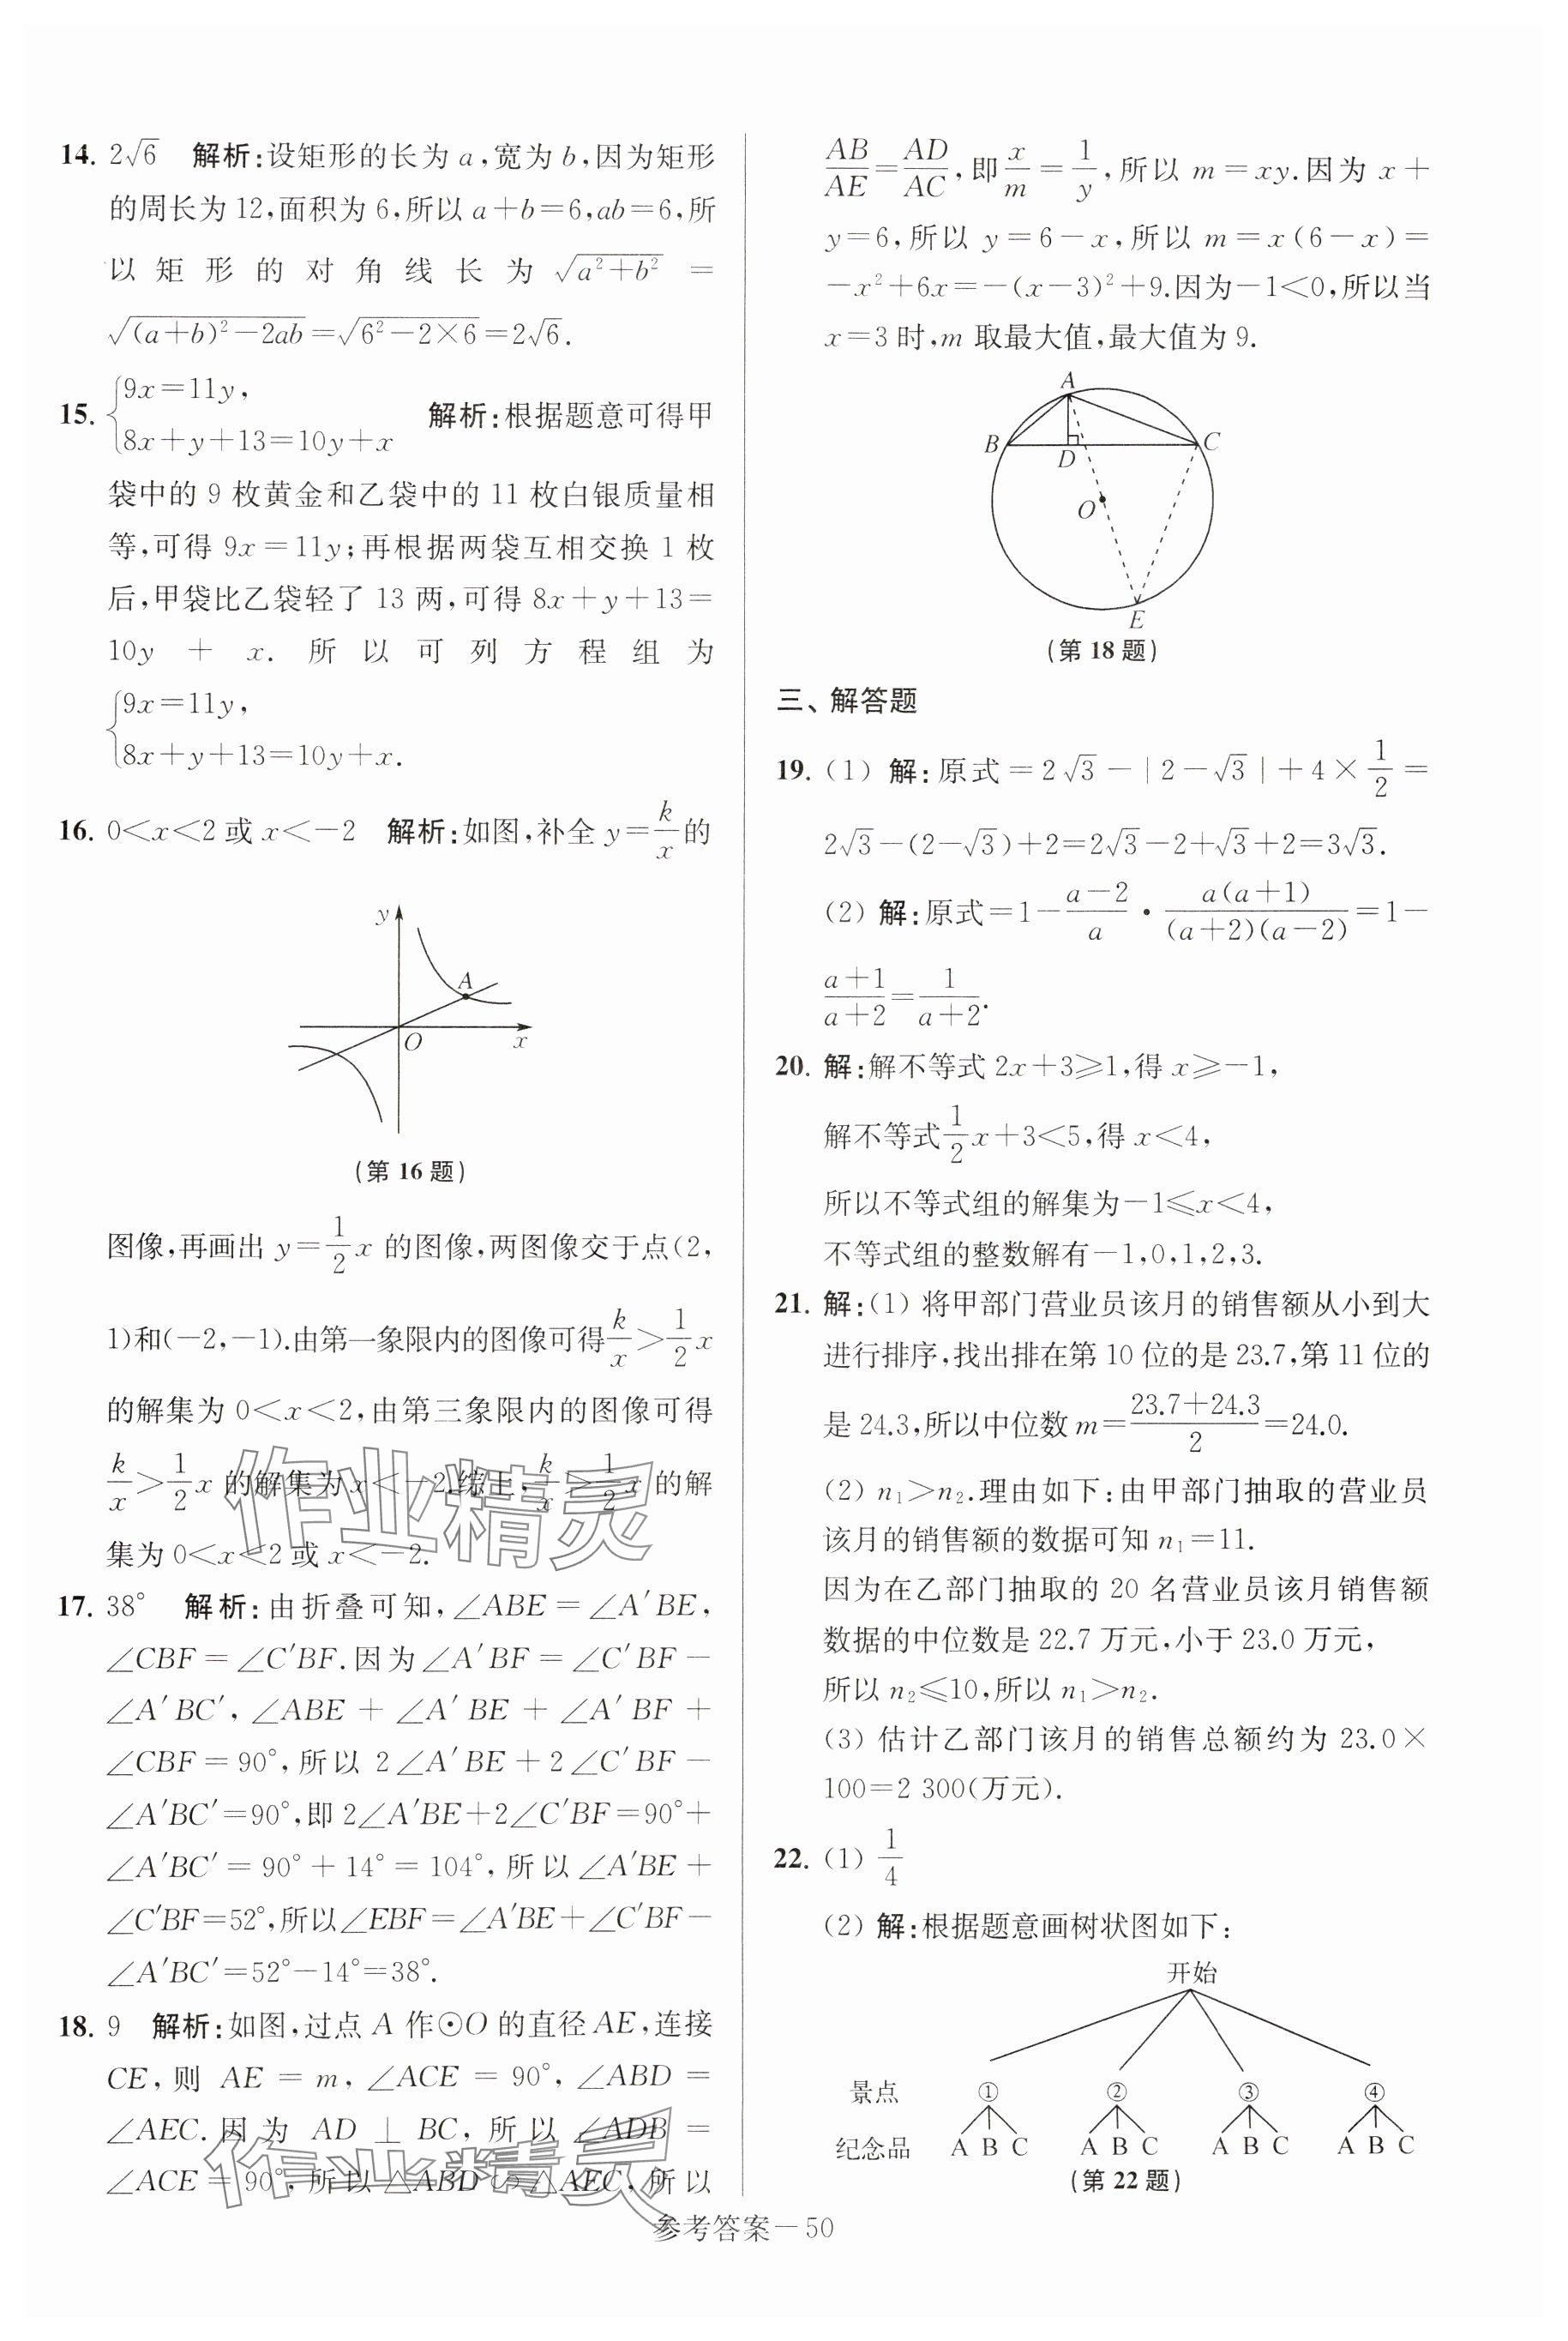 14. 2√6　解析:设矩形的长为 a,宽为 b,因为矩形
的周长为 12,面积为 6,所以 a+b=6,ab=6,所
以矩形的对角线长为 √(a²+b²) =
√((a+b)²-2ab)=√(6²-2×6)=2√6.
15. {9x=11y,
8x+y+13=10y+x　解析:根据题意可得甲
袋中的 9 枚黄金和乙袋中的 11 枚白银质量相
等,可得 9x=11y;再根据两袋互相交换 1 枚
后,甲袋比乙袋轻了 13 两,可得 8x+y+13=
10y + x. 所以可列方程组为
{9x=11y,
8x+y+13=10y+x.
16. 0<x<2 或 x<-2　解析:如图,补全 y=k/x 的
y
A
O
x
(第 16 题)
图像,再画出 y=1/2 x 的图像,两图像交于点(2,
1)和(-2,-1).由第一象限内的图像可得 k/x>1/2 x
的解集为 0<x<2,由第三象限内的图像可得
k/x>1/2 x 的解集为 x<-2.综上,k/x>1/2 x 的解
集为 0<x<2 或 x<-2.
作业精灵
17. 38°　解析:由折叠可知,∠ABE=∠A′BE,
∠CBF=∠C′BF.因为∠A′BF=∠C′BF-
∠A′BC′,∠ABE+∠A′BE+∠A′BF+
∠CBF=90°,所以 2∠A′BE+2∠C′BF-
∠A′BC′=90°,即 2∠A′BE+2∠C′BF=90°+
∠A′BC′=90°+14°=104°,所以∠A′BE+
∠C′BF=52°,所以∠EBF=∠A′BE+∠C′BF-
∠A′BC′=52°-14°=38°.
18. 9　解析:如图,过点 A 作⊙O 的直径 AE,连接
CE,则 AE=m,∠ACE=90°,∠ABD=
∠AEC.因为 AD⊥BC,所以∠ADB=
∠ACE=90°,所以△ABD∽△AEC,所以
作业精灵
AB/AE=AD/AC,即 x/m=1/y,所以 m=xy.因为 x+
y=6,所以 y=6-x,所以 m=x(6-x)=
-x²+6x=-(x-3)²+9.因为-1<0,所以当
x=3 时,m 取最大值,最大值为 9.
A
B
C
D
O
E
(第 18 题)
三、解答题
19. (1) 解:原式=2√3-|2-√3|+4×1/2=
2√3-(2-√3)+2=2√3-2+√3+2=3√3.
(2) 解:原式=1-(a-2)/a·a(a+1)/((a+2)(a-2))=1-
(a+1)/(a+2)=1/(a+2).
20. 解:解不等式 2x+3≥1,得 x≥-1,
解不等式 1/2 x+3<5,得 x<4,
所以不等式组的解集为-1≤x<4,
不等式组的整数解有-1,0,1,2,3.
21. 解:(1) 将甲部门营业员该月的销售额从小到大
进行排序,找出排在第 10 位的是 23.7,第 11 位的
是 24.3,所以中位数 m=(23.7+24.3)/2=24.0.
(2) n₁>n₂.理由如下:由甲部门抽取的营业员
该月的销售额的数据可知 n₁=11.
因为在乙部门抽取的 20 名营业员该月销售额
数据的中位数是 22.7 万元,小于 23.0 万元,
所以 n₂≤10,所以 n₁>n₂.
(3) 估计乙部门该月的销售总额约为 23.0×
100=2 300(万元).
22. (1) 1/4
(2) 解:根据题意画树状图如下:
开始
景点　①　②　③　④
纪念品　A B C　A B C　A B C　A B C
(第 22 题)
参考答案—50